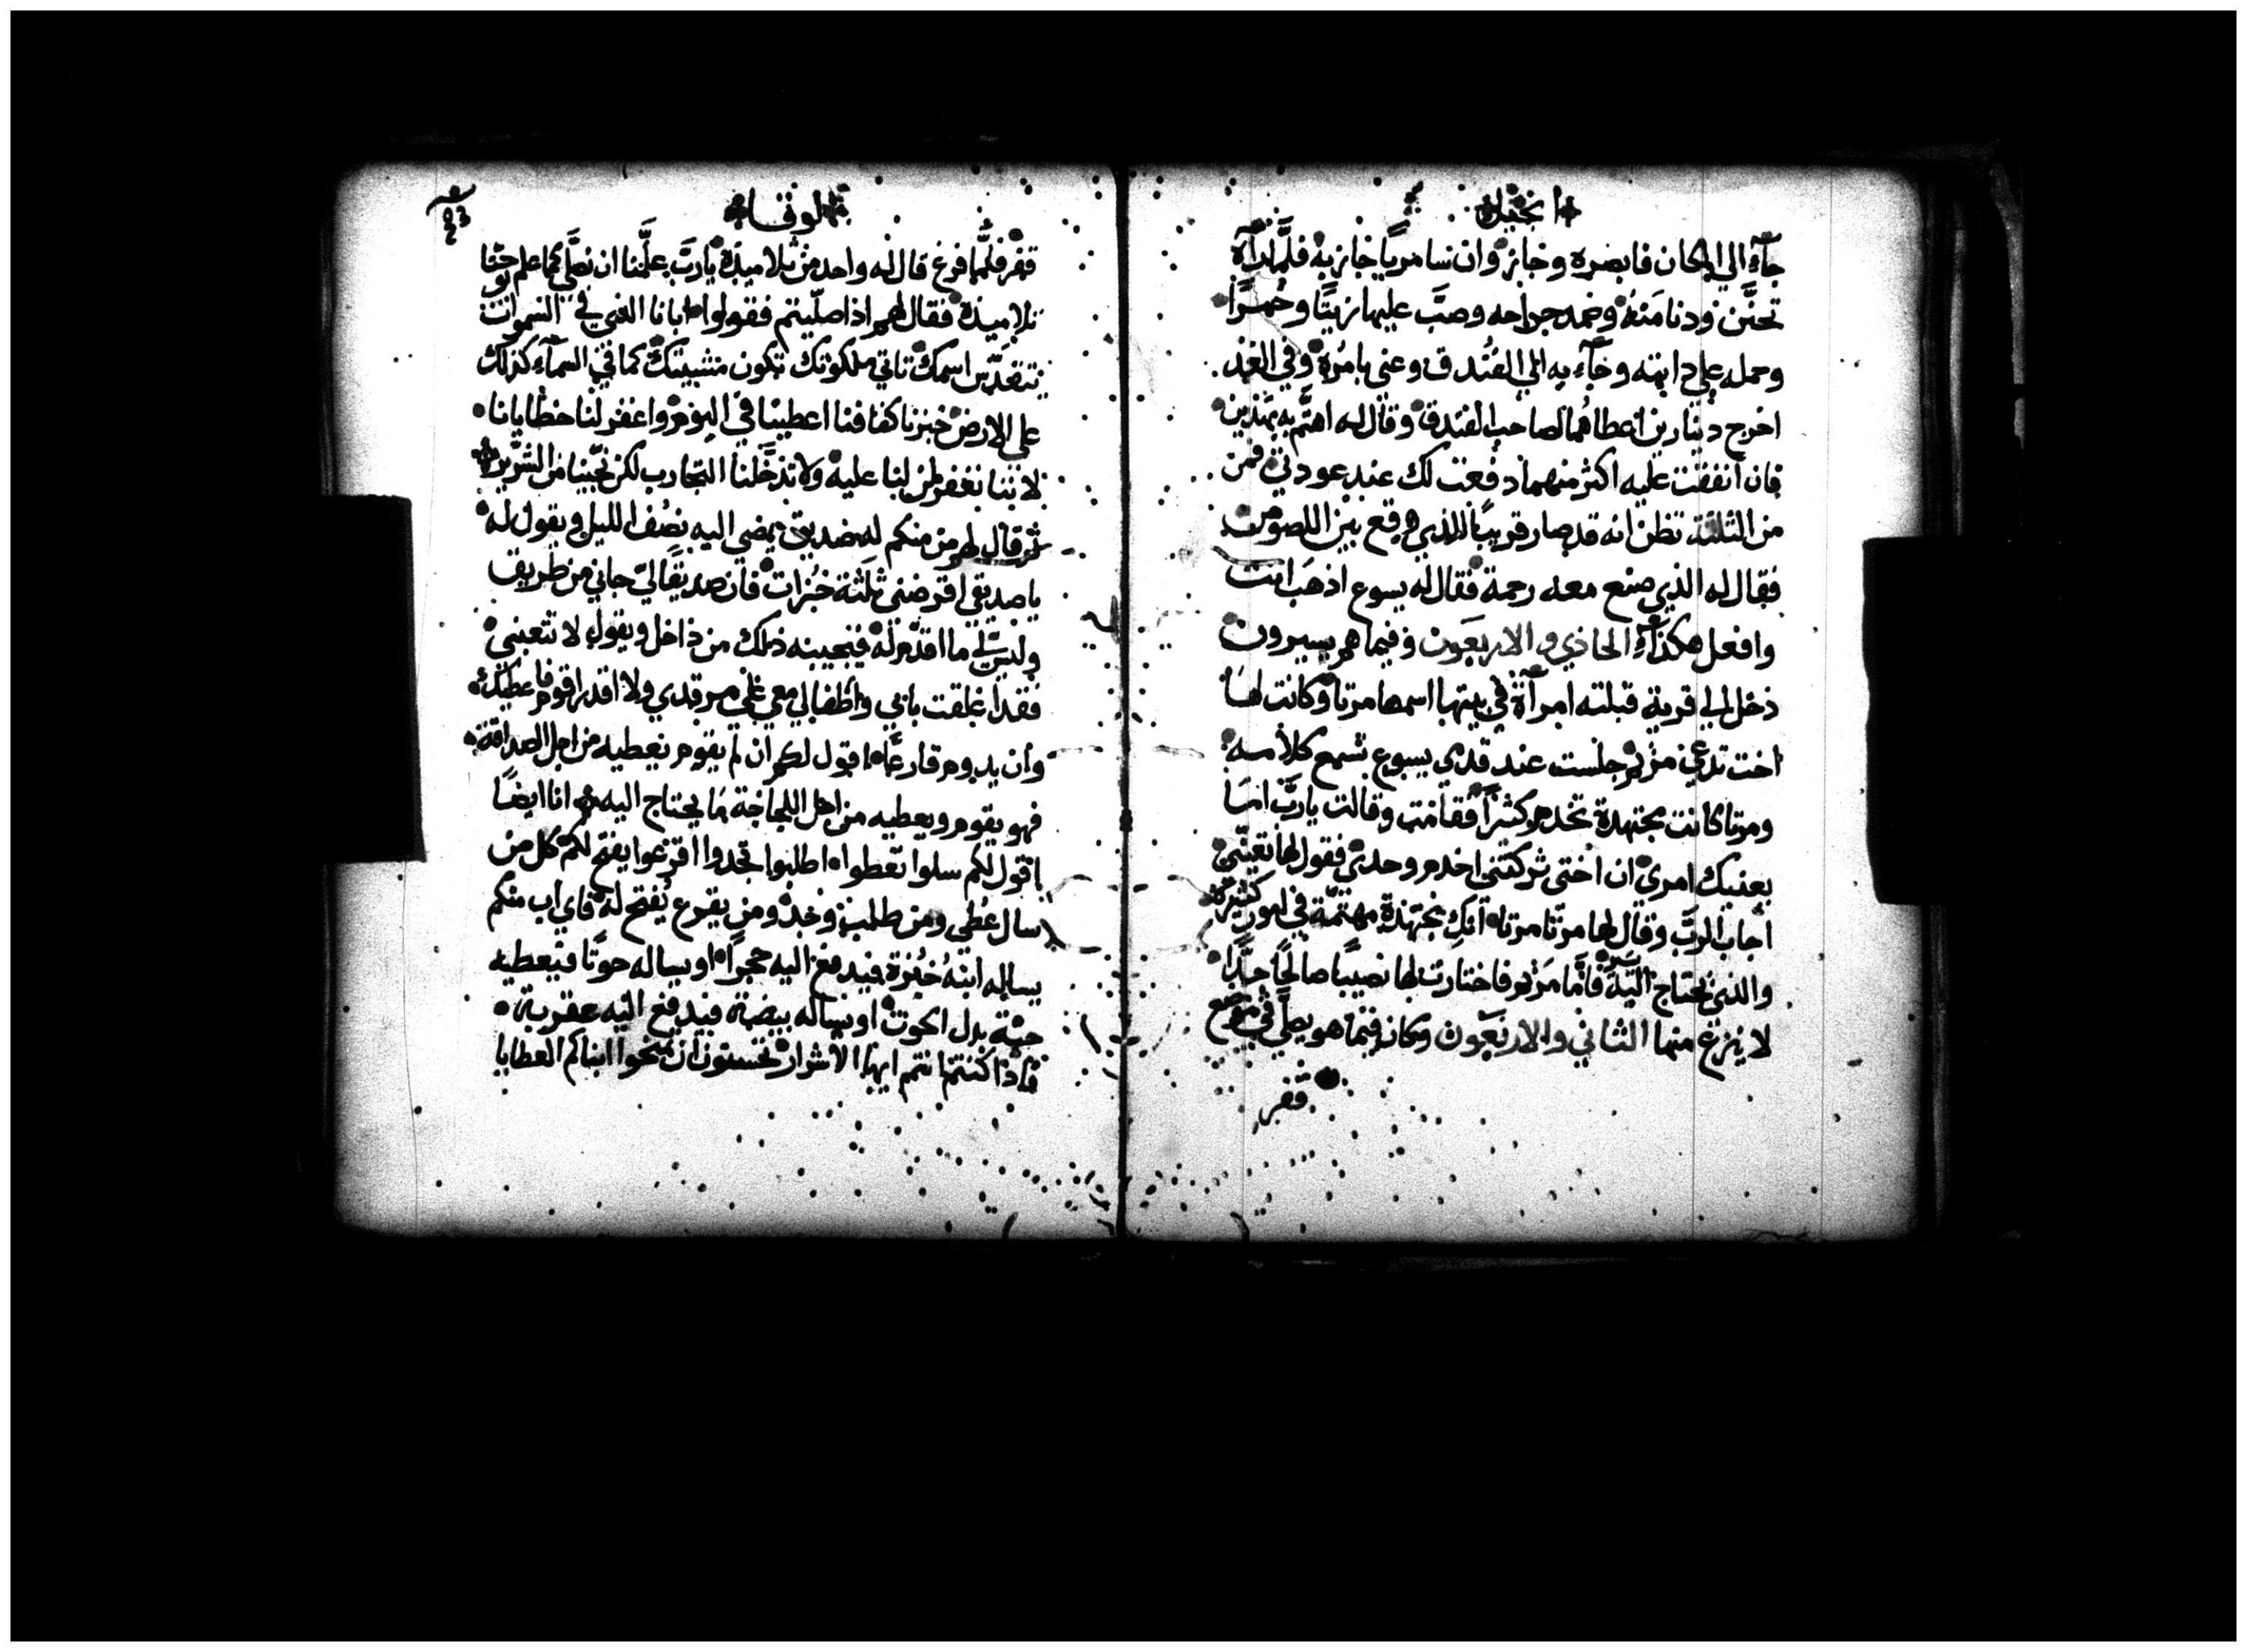 انجيل
جآء الي المكان فابصره وجاز وان سامريًا جاز به فلمَّا رآه
تحنَّن ودنا منهُ وضمد جراحه وصبَّ عليها زيتًا وخمرًا
وحمله علي دابته وجآء به الي الفُندق وعني بامُره وفي الغد
اخرج دينارين اعطاهُما لصاحب الفندق وقال له اهتمَّ به بهذين
فان انفقت عليه اكثر منهما دفعت لك عند عودتي فمن
من الثلثة تظن انه قد صار قريبًا للذي وقع بين اللصوص
فقال له الذي صنع معه رحمة فقال له يسوع اذهَب انت
وافعل هكذا الحادي والاربعَون وفيما هم يسيرون
دخل الي قرية قبلته امرآة في بيتها اسمها مرتا وكانت لها
اخت تدعي مريم جلست عند قدمي يسوع تسمع كلامه
ومرتا كانت مجتهدة تخدم كثيرًا فقامت وقالت ياربَّ امَا
يعنيك امري ان اختي تركتني اخدم وحدي فقول لها تعينّي
اجاب الربّ وقال لها مرتا مرتا انكِ مجتهدة مهتمّة في امور كثيرة
والذي يحتاج اليه يسير فامَّا مَريم فاختارت لها نصيبًا صالحًا جدًّا
لا يُنزع منها الثاني والاربعَون وكان فيما هو يصلّي في موضع
قفر
لوقا
قفر فلمَّا فرغ قال له واحد من تلاميذه ياربَّ علَّمنا ان نصلَّي كما علم يوحنا
تلاميذه فقال لهم اذا صلّيتم فقولوا ابانا الذي في السموات
يتقدّس اسمك تاتي ملكوتك تكون مشيتك كما في السمآء كذلك
علي الارض خبزنا كفافنا اعطينا في اليوم واغفر لنا خطايانا
لاننا نغفر لمن لنا عليه ولا تدخَّلنا التجارب لكن نجّينا من الشّرير
ثم قال لهم من منكم له صديق يمضي اليه نصُف الليل ويقول له
يا صديقي اقرضني ثلثة خُبزات فان صديقًا لي جاني من طريف
وليس لي ما اقدّم له فيجيبه ذلك من داخل ويقول لا تتعبني
فقد اغلقت بابي واطفالي معي علي مرقدي ولا اقدر اقوم فاعطيك
وان يدوم قارعًا اقول لكم ان لم يقوم يعطيه من اجل الصداقة
فهو يقوم ويعطيه من اجل اللجاجة ما يحتاج اليه انا ايضًا
اقول لكم سلوا تعطوا اطلبوا تجدوا اقرعوا يفتح لكم كل من
سال عُطي ومن طلب وجد ومن يقرع يُفتح له فاي اب منكم
يساله ابنهُ خبُزة فيدفع اليه حجرًا او يساله حوتًا فيعطيه
حيّة بدل الحوت او يساله بيضة فيدفع اليه عقربة
فاذا كنتم انتم ايها الاشرار تحسنون ان تمنحوا ابناكم العطايا